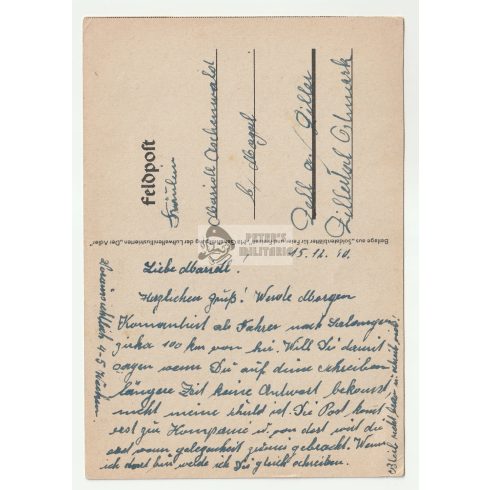 Feldpost
Fräulein
Maridl Aschenwald
b/ Mayel
Zell a./ Ziller
Zillertal Ostmark
Beilage aus „Soldatenblätter für Feier und Freizeit“ der Luftwaffenillustrierten „Der Adler“
PETER'S
MILITARIA
15.12.40.
Liebe Maridl.
Herzlichen Gruß! Werde Morgen
Komantiert als Fahrer nach
zirka 100 km von hir. Will Dir damit
sagen wenn Du auf deine schreiben
längere Zeit keine Antwort bekomst
nicht meine shuld ist. Die Post komt
erst zur Kompanie u. von dort wird die
erst wann gelegenheit zu uns gebracht. Wenn
ich dort bin werde ich Dir gleich schreiben.
4-5 Wochen.